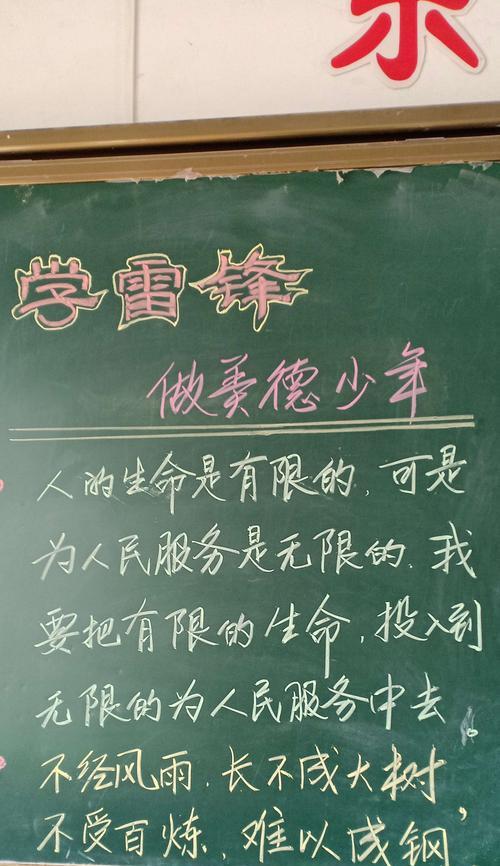 学雷锋
做美德少年
人的生命是有限的,可是
为人民服务是无限的.我
要把有限的生命,投入到
无限的为人民服务中去
不经风雨,长不成大树,
不受百炼,难以成钢